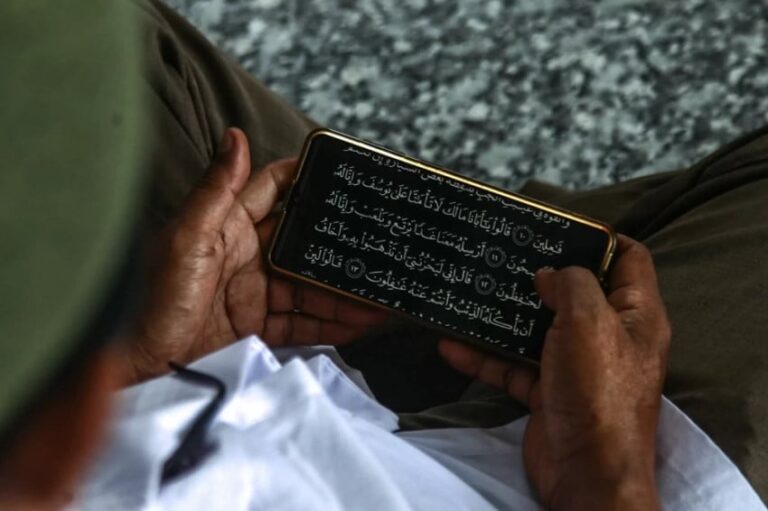 وألقوه في غيبت الجب يلتقطه بعض السيارة إن كنتم
فَٰعِلِينَ ١٠ قَالُوا۟ يَٰٓأَبَانَا مَا لَكَ لَا تَأْمَ۫نَّا عَلَىٰ يُوسُفَ وَإِنَّا لَهُۥ
لَنَٰصِحُونَ ١١ أَرْسِلْهُ مَعَنَا غَدًا يَرْتَعْ وَيَلْعَبْ وَإِنَّا لَهُۥ
لَحَٰفِظُونَ ١٢ قَالَ إِنِّي لَيَحْزُنُنِىٓ أَن تَذْهَبُوا۟ بِهِۦ وَأَخَافُ
أَن يَأْكُلَهُ ٱلذِّئْبُ وَأَنتُمْ عَنْهُ غَٰفِلُونَ ١٣ قَالُوا۟ لَئِنْ